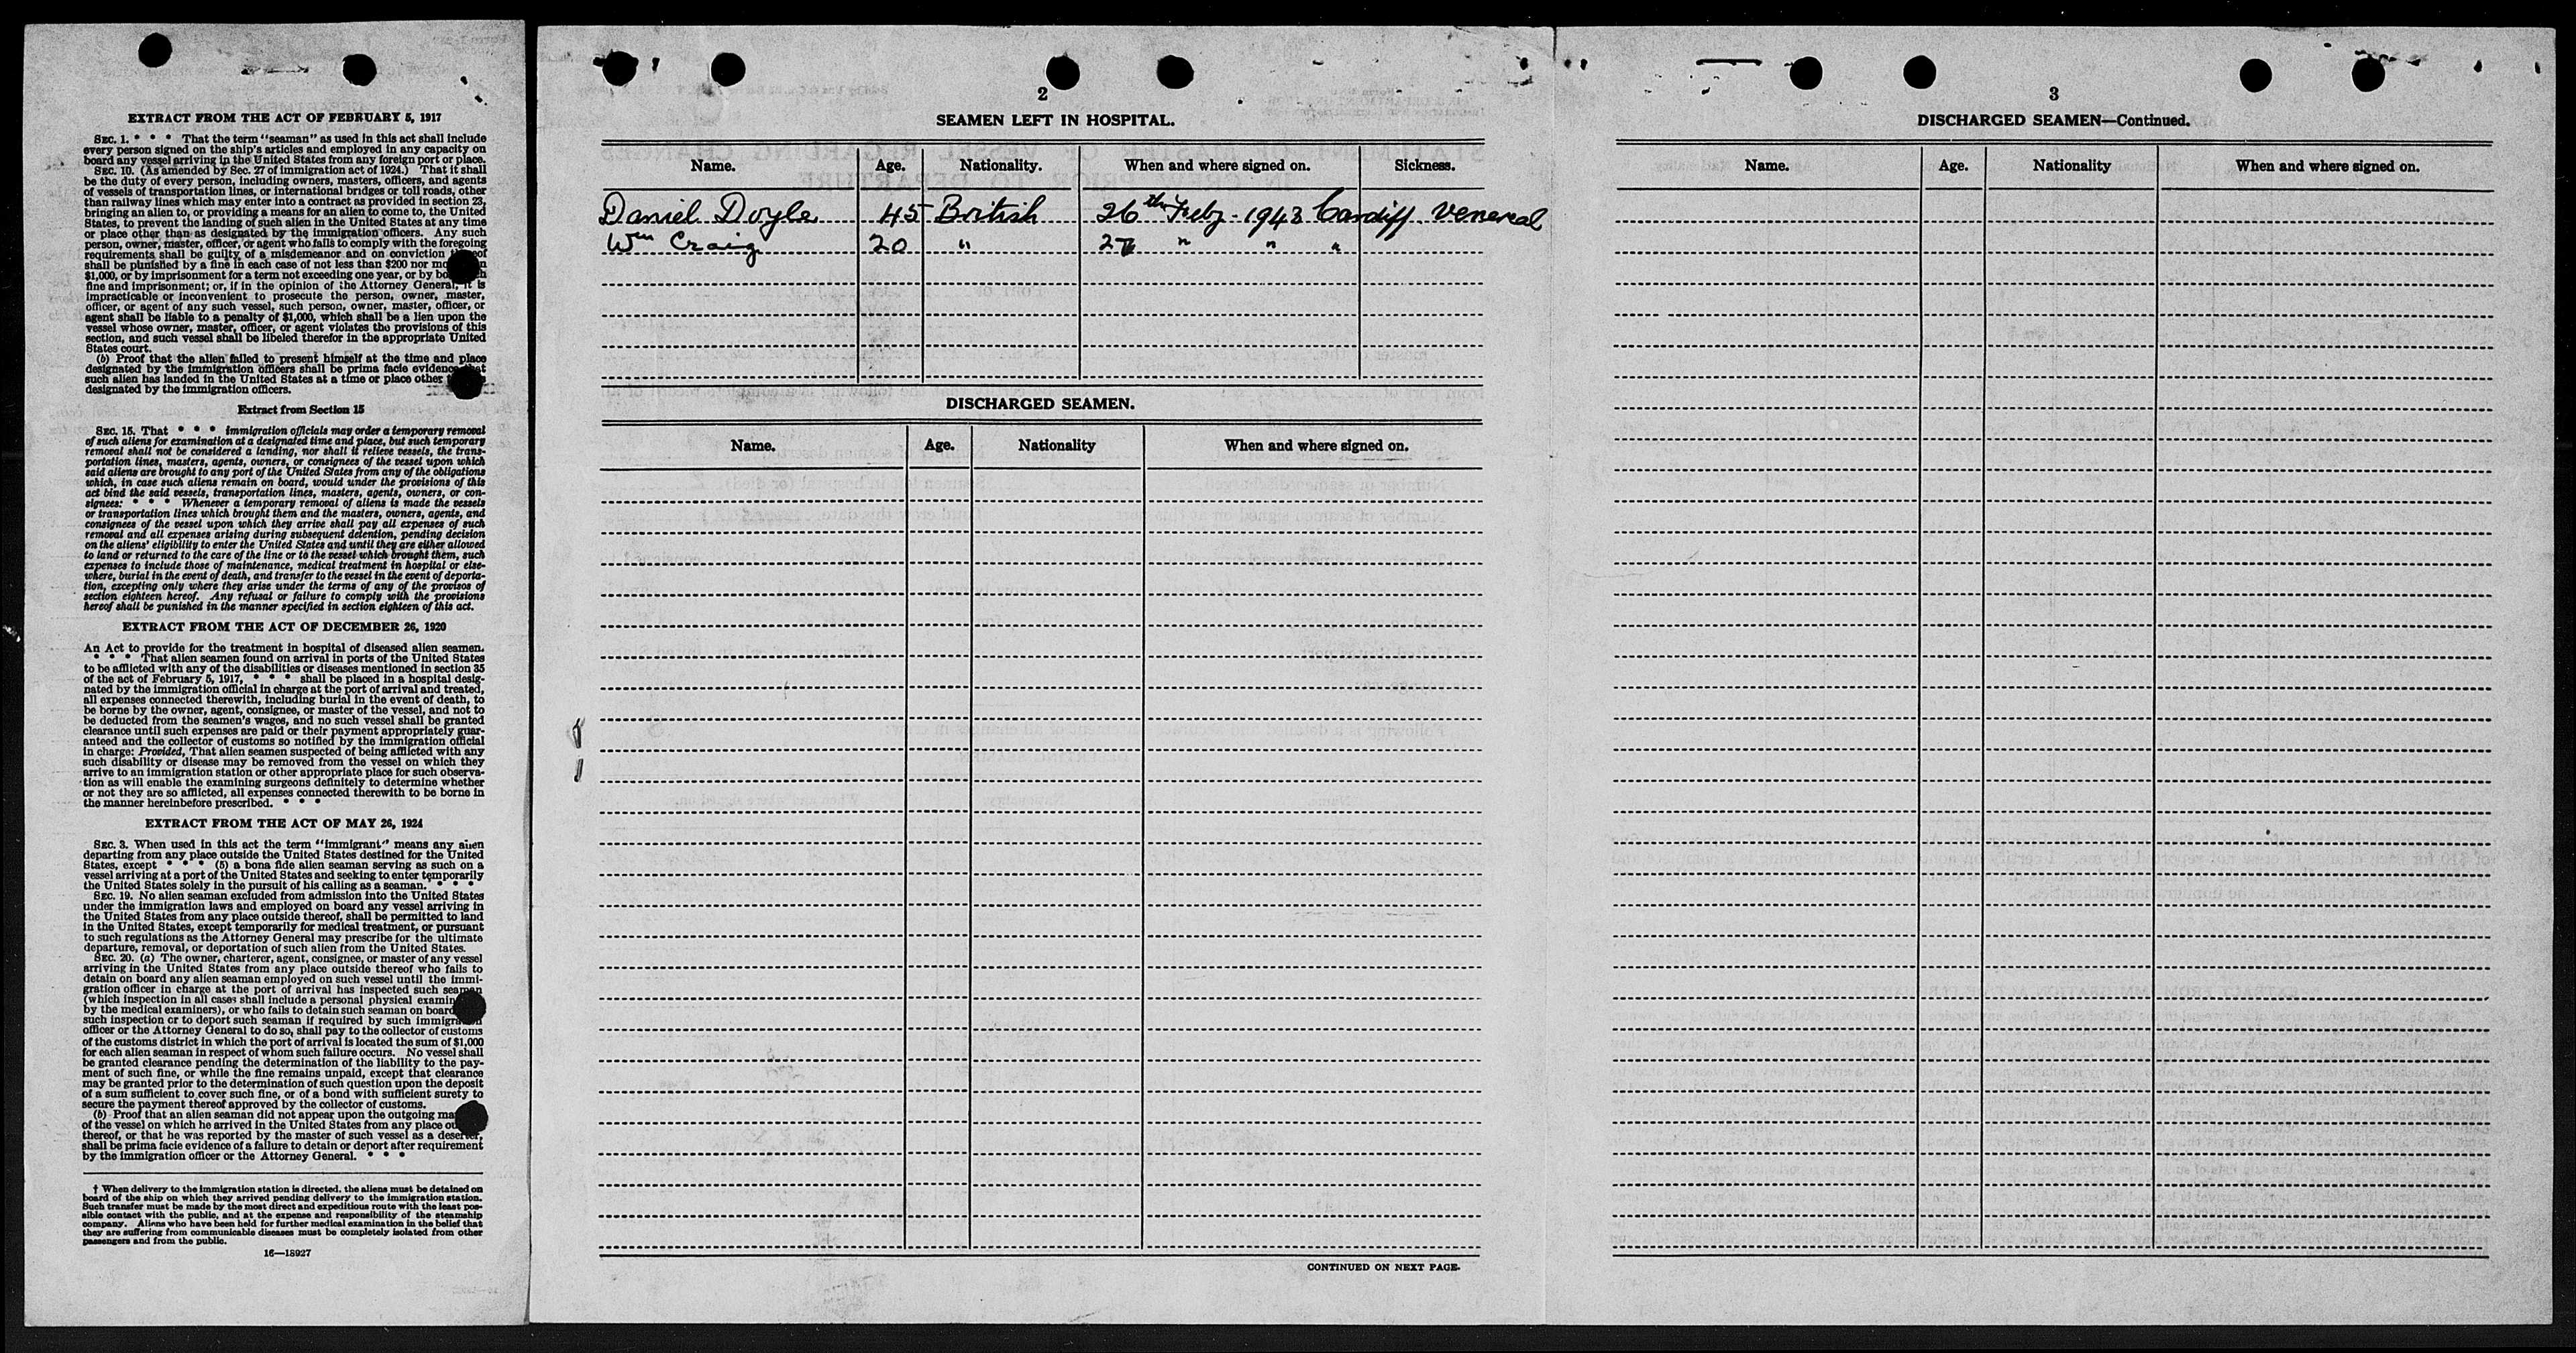 EXTRACT FROM THE ACT OF FEBRUARY 5, 1917
SEC. 1. * * * That the term "seaman" as used in this act shall include
every person signed on the ship's articles and employed in any capacity on
board any vessel arriving in the United States from any foreign port or place.
SEC. 10. (As amended by Sec. 27 of immigration act of 1924.) That it shall
be the duty of every person, including owners, masters, officers, and agents
of vessels of transportation lines, or international bridges or toll roads, other
than railway lines which may enter into a contract as provided in section 23,
bringing an alien to, or providing a means for an alien to come to, the United
States, to prevent the landing of such alien in the United States at any time
or place other than as designated by the immigration officers. Any such
person, owner, master, officer, or agent who fails to comply with the foregoing
requirements shall be guilty of a misdemeanor and on conviction
shall be punished by a fine in each case of not less than $200 nor
$1,000, or by imprisonment for a term not exceeding one year, or by
fine and imprisonment; or, if in the opinion of the Attorney General, it is
impracticable or inconvenient to prosecute the person, owner, master,
officer, or agent of any such vessel, such person, owner, master, officer, or
agent shall be liable to a penalty of $1,000, which shall be a lien upon the
vessel whose owner, master, officer, or agent violates the provisions of this
section, and such vessel shall be libeled therefor in the appropriate United
States court.
(b) Proof that the alien failed to present himself at the time and place
designated by the immigration officers shall be prima facie evidence
such alien has landed in the United States at a time or place other
designated by the immigration officers.
Extract from Section 15
SEC. 15. That * * * immigration officials may order a temporary removal
of such aliens for examination at a designated time and place, but such temporary
removal shall not be considered a landing, nor shall it relieve vessels, the trans-
portation lines, masters, agents, owners, or consignees of the vessel upon which
said aliens are brought to any port of the United States from any of the obligations
which, in case such aliens remain on board, would under the provisions of this
act bind the said vessels, transportation lines, masters, agents, owners, or con-
signees: * * * Whenever a temporary removal of aliens is made the vessels
or transportation lines which brought them and the masters, owners, agents, and
consignees of the vessel upon which they arrive shall pay all expenses of such
removal and all expenses arising during subsequent detention, pending decision
on the aliens' eligibility to enter the United States and until they are either allowed
to land or returned to the care of the line or to the vessel which brought them, such
expenses to include those of maintenance, medical treatment in hospital or else-
where, burial in the event of death, and transfer to the vessel in the event of deporta-
tion, excepting only where they arise under the terms of any of the provisos of
section eighteen hereof. Any refusal or failure to comply with the provisions
hereof shall be punished in the manner specified in section eighteen of this act.
EXTRACT FROM THE ACT OF DECEMBER 26, 1920
An Act to provide for the treatment in hospital of diseased alien seamen.
* * * That alien seamen found on arrival in ports of the United States
to be afflicted with any of the disabilities or diseases mentioned in section 35
of the act of February 5, 1917, * * * shall be placed in a hospital desig-
nated by the immigration official in charge at the port of arrival and treated,
all expenses connected therewith, including burial in the event of death, to
be borne by the owner, agent, consignee, or master of the vessel, and not to
be deducted from the seamen's wages, and no such vessel shall be granted
clearance until such expenses are paid or their payment appropriately guar-
anteed and the collector of customs so notified by the immigration official
in charge: Provided, That alien seamen suspected of being afflicted with any
such disability or disease may be removed from the vessel on which they
arrive to an immigration station or other appropriate place for such observa-
tion as will enable the examining surgeons definitely to determine whether
or not they are so afflicted, all expenses connected therewith to be borne in
the manner hereinbefore prescribed. * * *
EXTRACT FROM THE ACT OF MAY 26, 1924
SEC. 3. When used in this act the term "immigrant" means any alien
departing from any place outside the United States destined for the United
States, except * * * (5) a bona fide alien seaman serving as such on a
vessel arriving at a port of the United States and seeking to enter temporarily
the United States solely in the pursuit of his calling as a seaman. * * *
SEC. 19. No alien seaman excluded from admission into the United States
under the immigration laws and employed on board any vessel arriving in
the United States from any place outside thereof, shall be permitted to land
in the United States, except temporarily for medical treatment, or pursuant
to such regulations as the Attorney General may prescribe for the ultimate
departure, removal, or deportation of such alien from the United States.
SEC. 20. (a) The owner, charterer, agent, consignee, or master of any vessel
arriving in the United States from any place outside thereof who fails to
detain on board any alien seaman employed on such vessel until the immi-
gration officer in charge at the port of arrival has inspected such seaman
(which inspection in all cases shall include a personal physical
by the medical examiners), or who fails to detain such seaman on board
such inspection or to deport such seaman if required by such immigration
officer or the Attorney General to do so, shall pay to the collector of customs
of the customs district in which the port of arrival is located the sum of $1,000
for each alien seaman in respect of whom such failure occurs. No vessel shall
be granted clearance pending the determination of the liability to the pay-
ment of such fine, or while the fine remains unpaid, except that clearance
may be granted prior to the determination of such question upon the deposit
of a sum sufficient to cover such fine, or of a bond with sufficient surety to
secure the payment thereof approved by the collector of customs.
(b) Proof that an alien seaman did not appear upon the outgoing
of the vessel on which he arrived in the United States from any place
thereof, or that he was reported by the master of such vessel as a deserter,
shall be prima facie evidence of a failure to detain or deport after requirement
by the immigration officer or the Attorney General. * * *
† When delivery to the immigration station is directed, the aliens must be detained on
board of the ship on which they arrived pending delivery to the immigration station.
Such transfer must be made by the most direct and expeditious route with the least pos-
sible contact with the public, and at the expense and responsibility of the steamship
company. Aliens who have been held for further medical examination in the belief that
they are suffering from communicable diseases must be completely isolated from other
passengers and from the public.
16—18927
2
SEAMEN LEFT IN HOSPITAL.
Name. Age. Nationality. When and where signed on. Sickness.
Daniel Doyle 45 British 26th Feby. 1943 Cardiff Venereal
Wm Craig 20 " 27 " " "
DISCHARGED SEAMEN.
Name. Age. Nationality When and where signed on.
CONTINUED ON NEXT PAGE.
3
DISCHARGED SEAMEN—Continued.
Name. Age. Nationality When and where signed on.